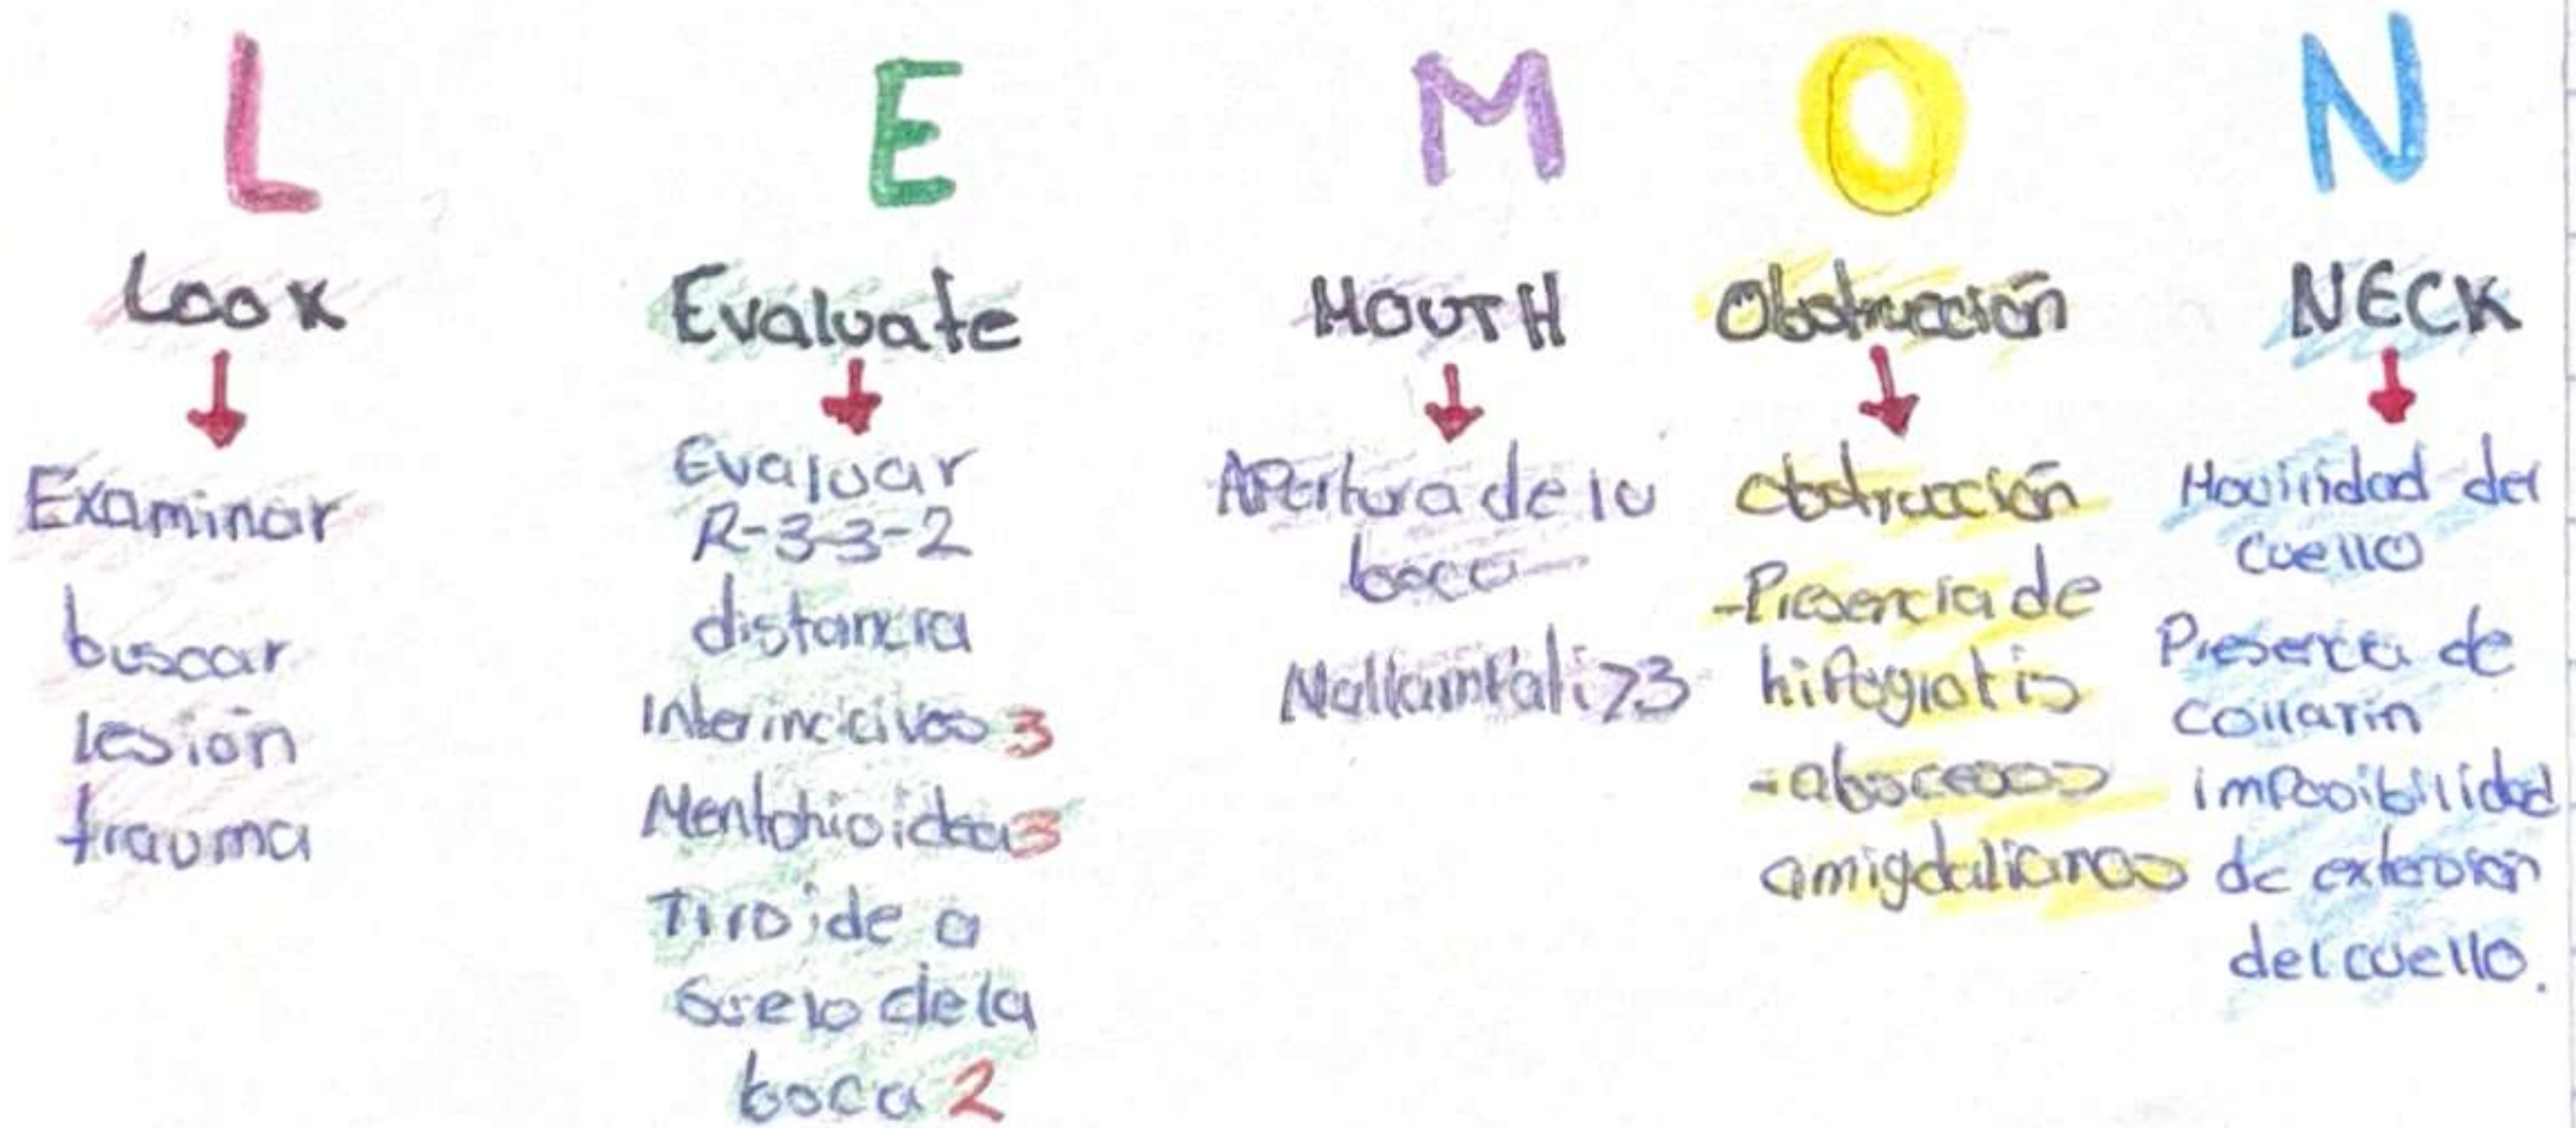 L
Look
Examinar
buscar
lesión
trauma
E
Evaluate
Evaluar
R-3-3-2
distancia
Interincicivos 3
Mentohioidea 3
Tiroide a
Suelo de la
boca 2
M
MOUTH
Apertura de la
boca
Mallampati >3
O
Obstrucción
Obstrucción
-Presencia de
-abscesos
amigdalianos
N
NECK
Movilidad del
cuello
Presencia de
collarin
imposibilidad
de extensión
del cuello.